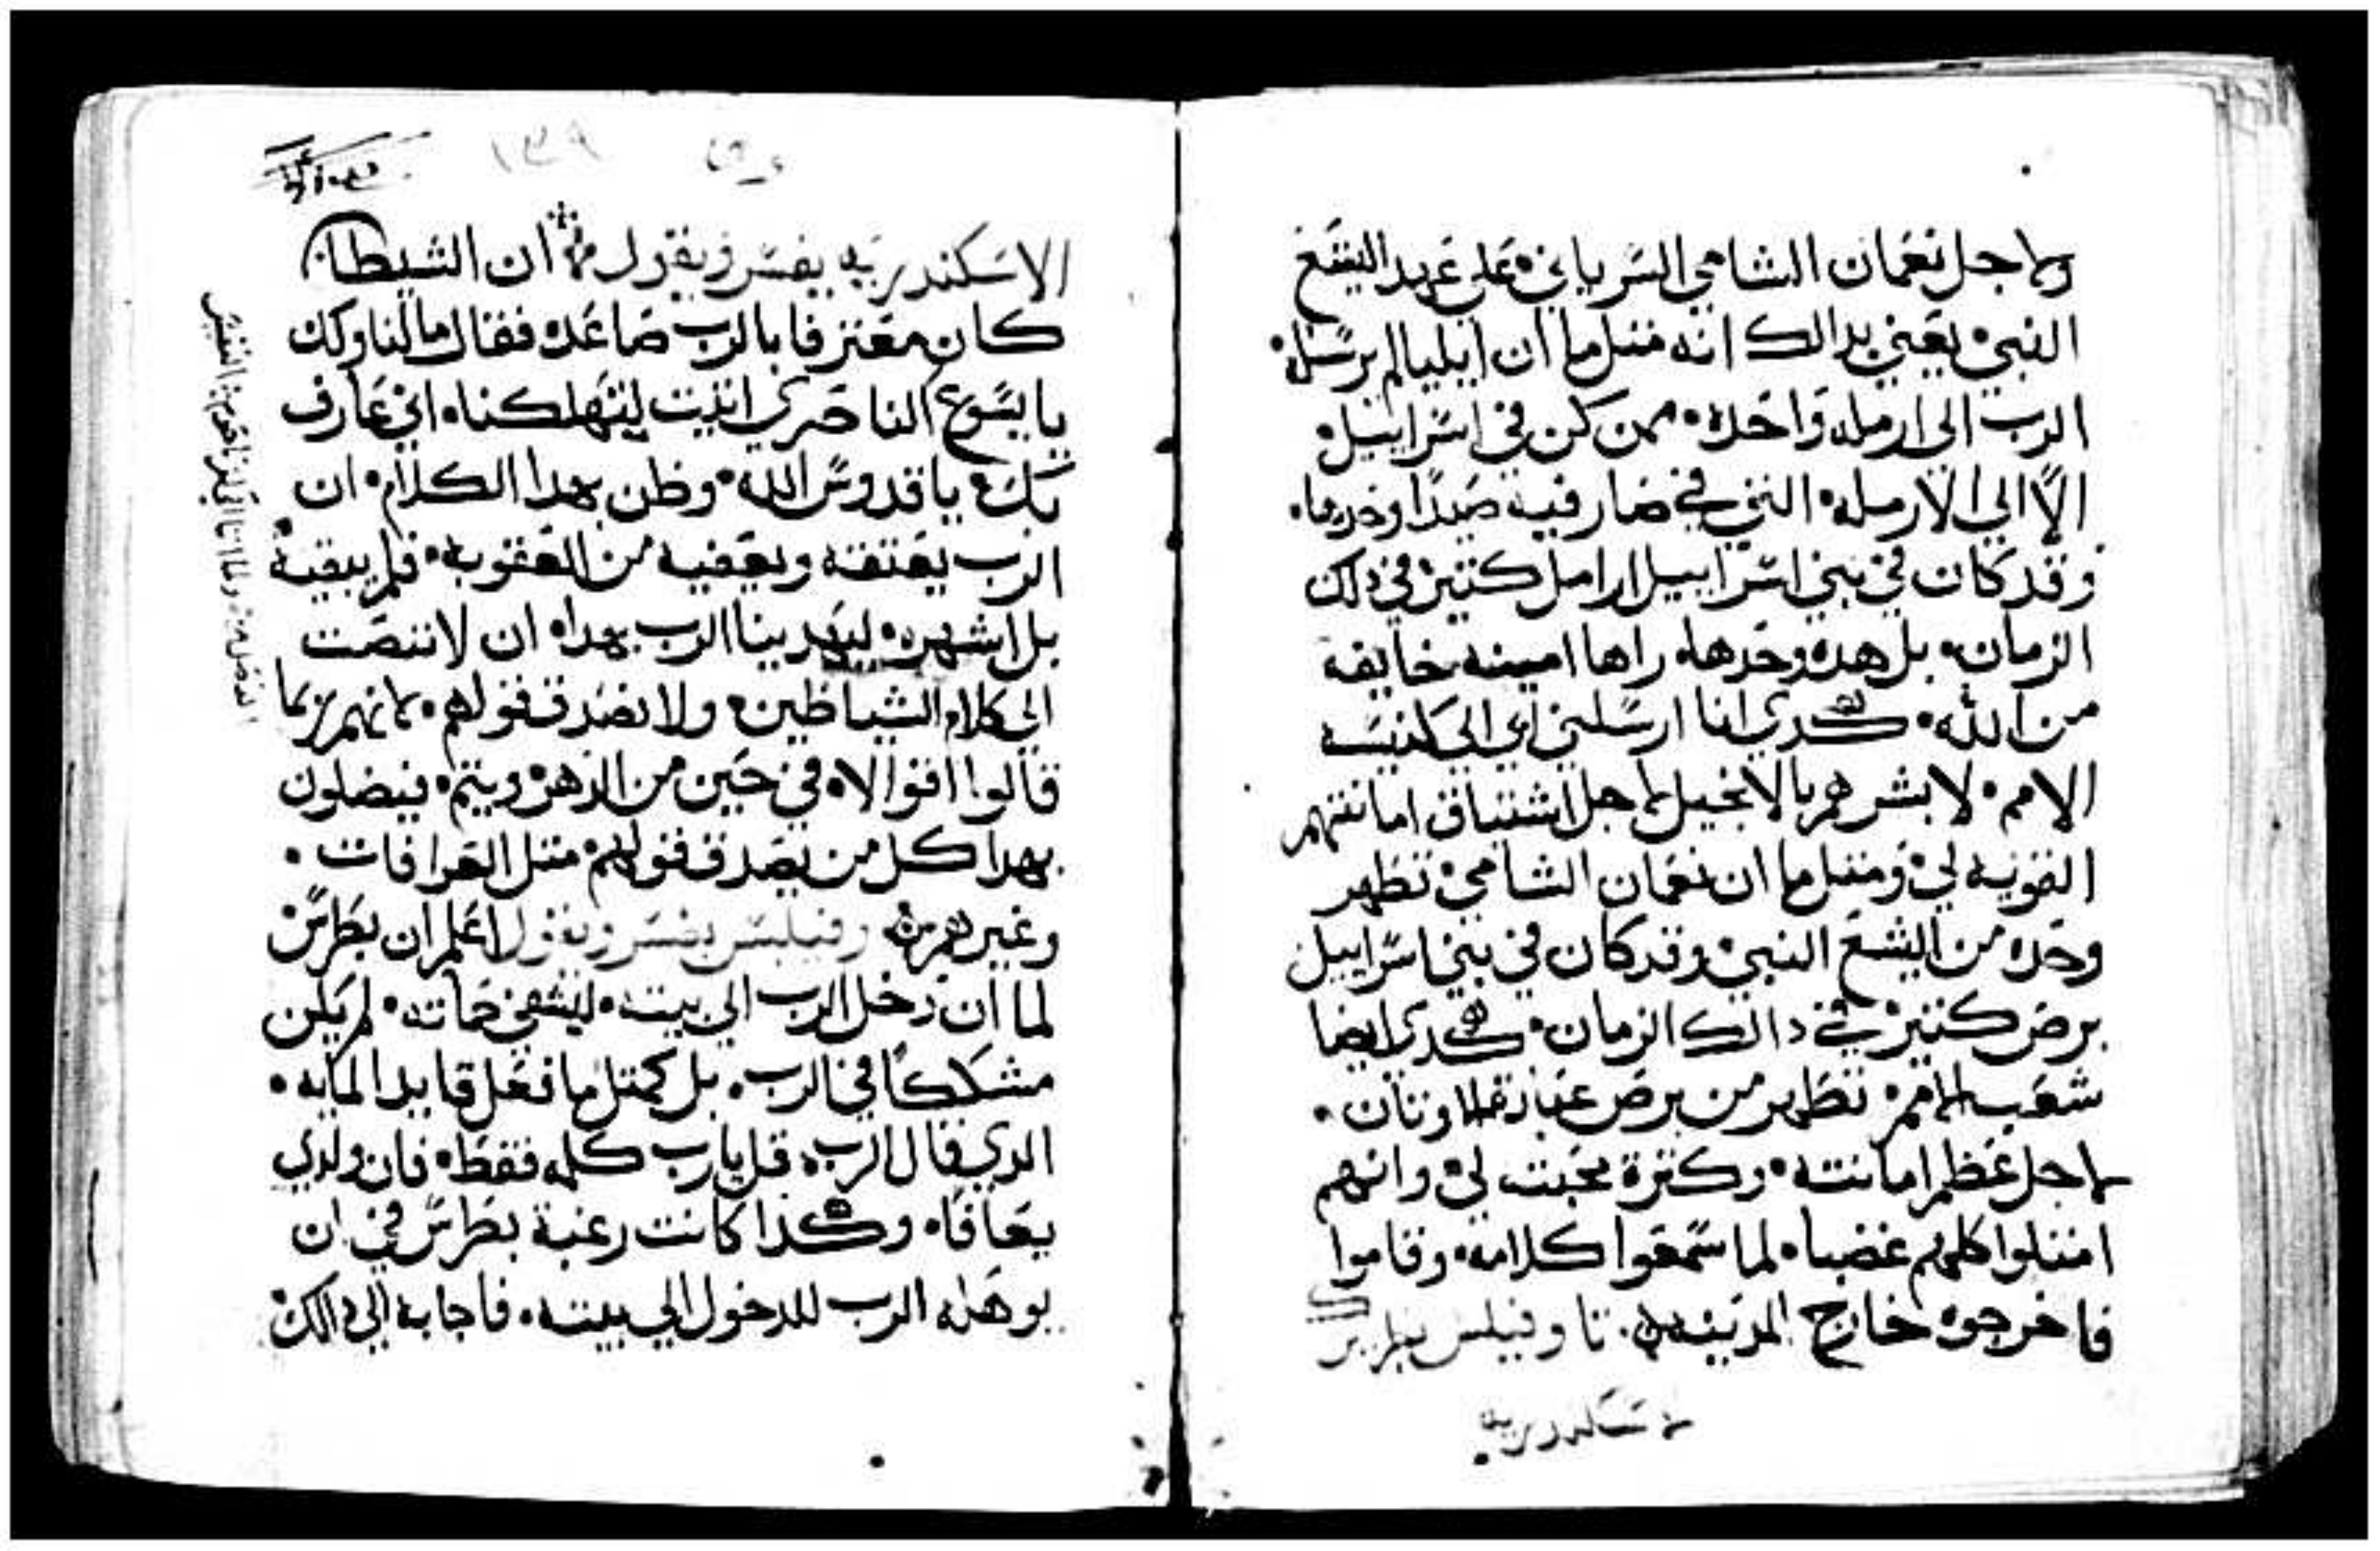 ولاجل نعمان الشامي السرياني علي عهد اليشع
النبي يعني بدالك انه متل ما ان ايليا لم يرسله
الرب الى ارمله واحده ممن كن في اسراييل
الا الي الارمله التي في صارفيه صيدا وحدها
وقد كان في بني اسراييل ارامل كتير في دلك
الزمان بل هده وحدها راها امينه خايفة
من الله هكدي انا ارسلني ابي الي كنيسه
الامم لابشرهم بالانجيل لاجل اشتياق امانتهم
القويه لي ومتل ما ان نعمان الشامي تطهر
وحده من اليشع النبي وقد كان في بني اسراييل
برص كتير في دالك الزمان هكدي ايضا
شعب الامم تطهر من برص عبادة الاوتان
لاجل عظم امانته وكترة محبته لي وانهم
امتلوا كلهم غضبا لما سمعوا كلامه وقاموا
فاخرجوه خارج المدينه تاوفيلس بطريرك
الاسكندريه يفسر ويقول ان الشيطان
كان معترفا بالرب صاعده فقال ما لنا ولك
يا يسوع الناصري اتيت لتهلكنا اني عارف
بك يا قدوس الله وظن بهدا الكلام ان
الرب يعتقه ويعفيه من العقوبه فلم يبقيه
بل اشهره ليهدينا الرب بهدا ان لا ننصت
الي كلام الشياطين ولا نصدق قولهم لانهم ربما
قالوا اقوالا في حين من الدهر ويتم فيضلون
بهدا كل من يصدق قولهم متل العرافات
وغيرهم وفيلبس يفسر ويقول اعلم ان بطرس
لما ان دخل الرب الي بيته ليشفي حماته لم يكن
مشككا في الرب بل كمتل ما فعل قايد المايه
الدي قال الرب قل يا رب كلمه فقط فان ولدي
يعافا وهكدا كانت رغبة بطرس في ان
يوهله الرب للدخول الي بيته فاجابه الي دالك